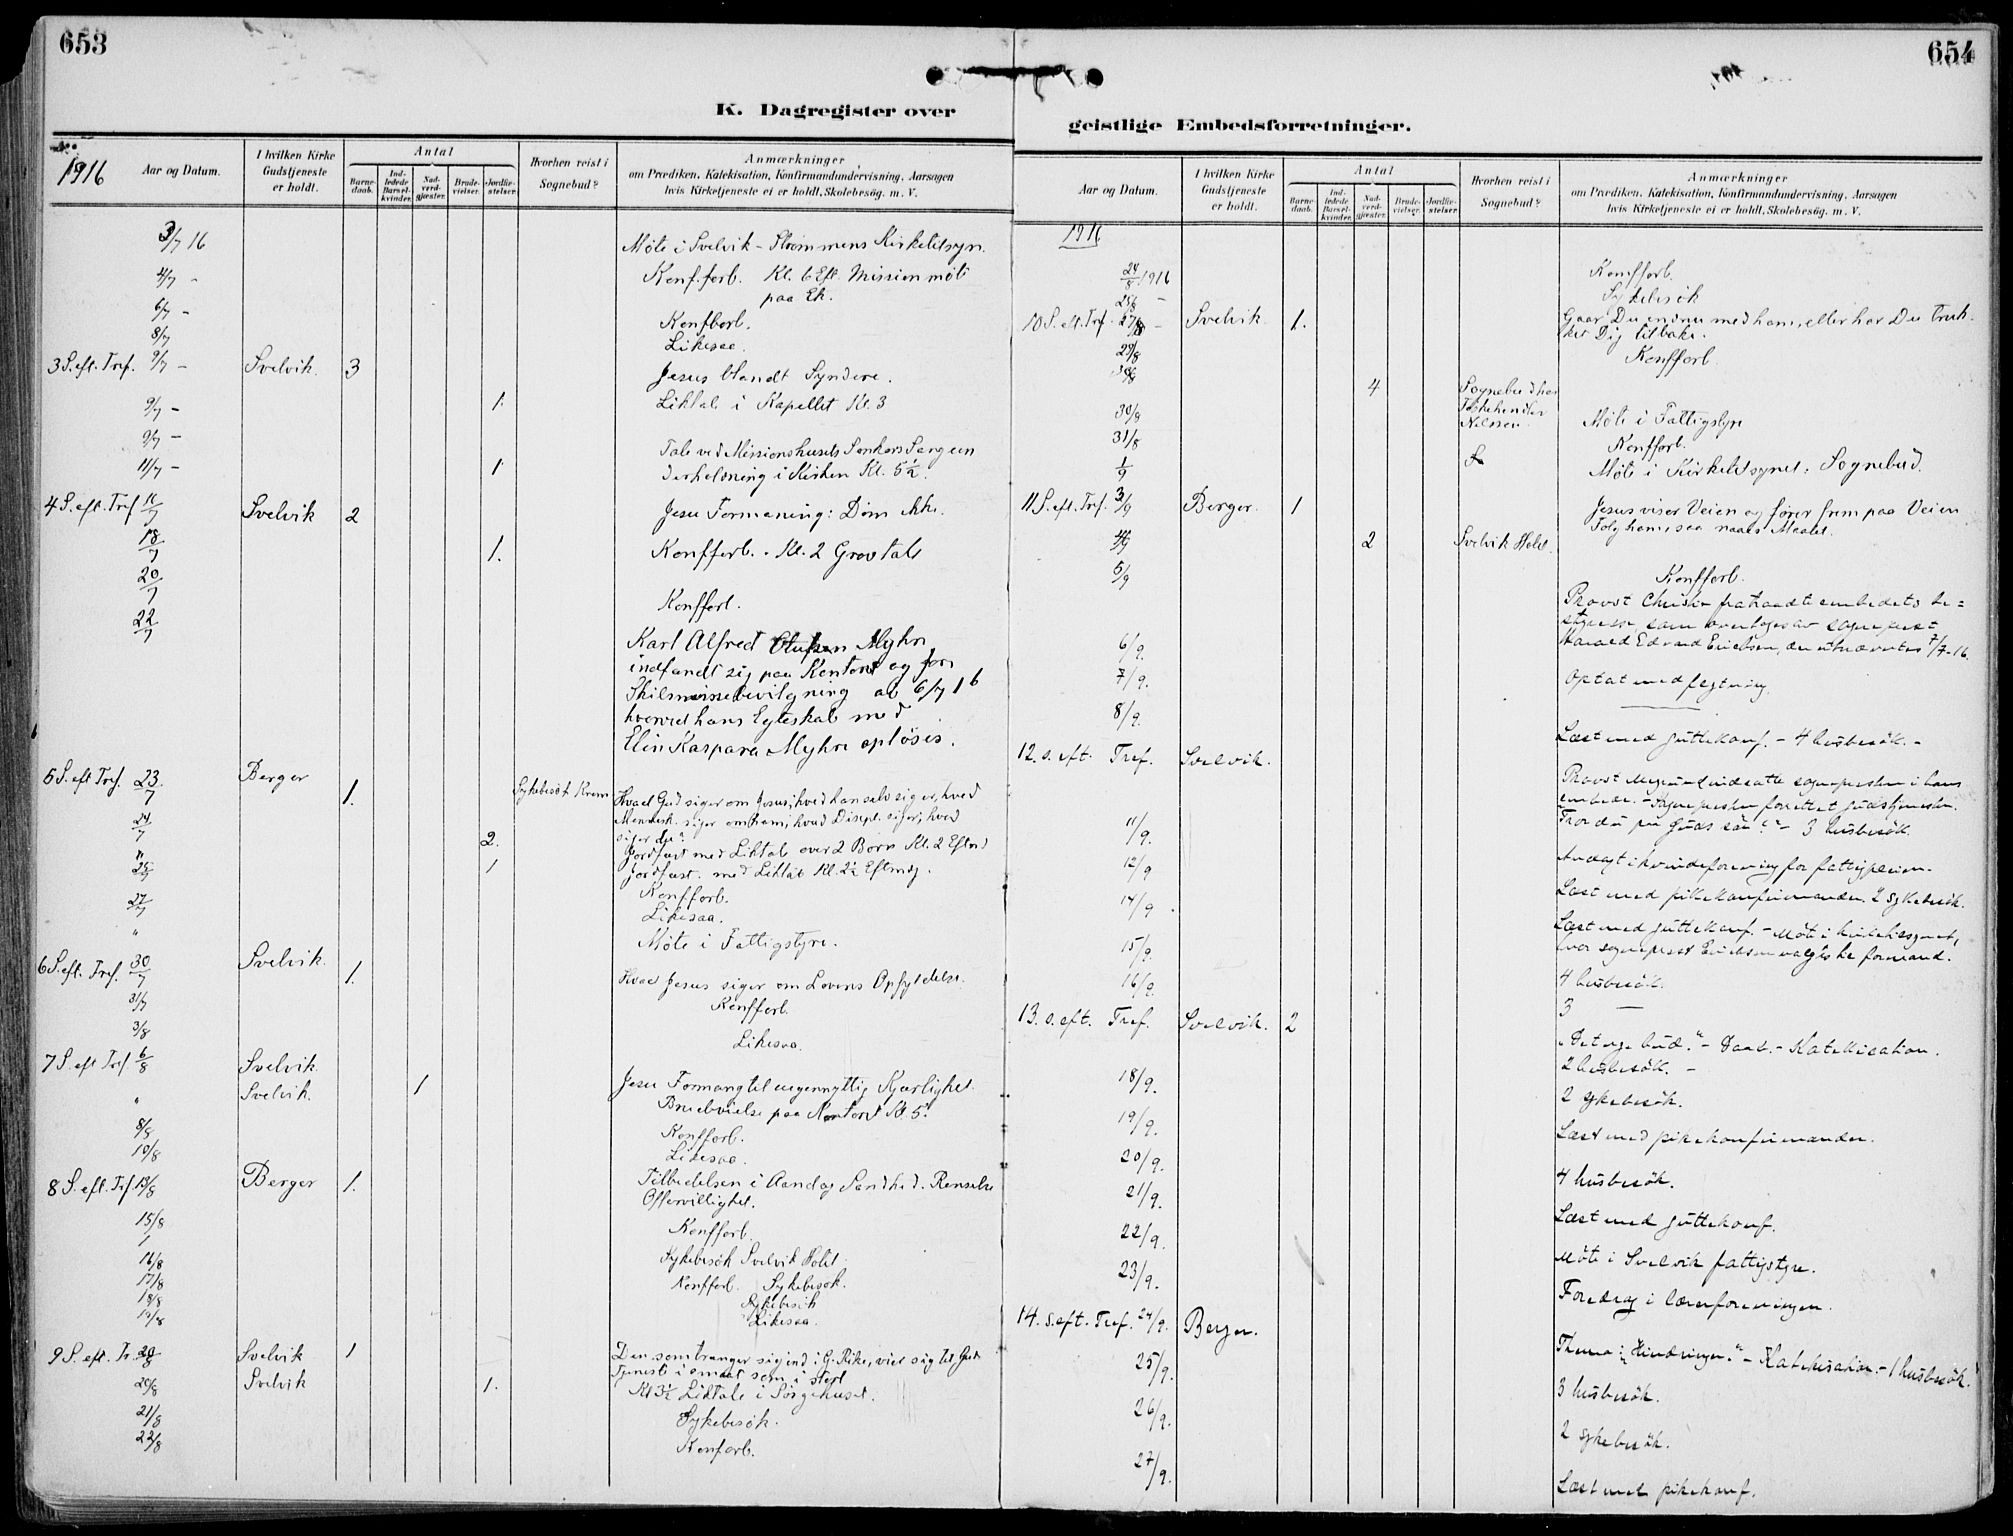 653
K. Dagregister over
1916 Aar og Datum.
I hvilken Kirke Gudstjeneste er holdt.
Antal
Barnedaab.
Indledede Barselkvinder.
Nadverdgjæster.
Brudevielser.
Jordfæstelser.
Hvorhen reist i Sognebud?
Anmærkninger
om Prædiken, Katekisation, Konfirmandundervisning, Aarsagen
hvis Kirketjeneste ei er holdt, Skolebesøg. m. V.
3/7 16 Møte i Svelvik - Strømmens Kirketilsyn.
4/7 - Konf.forb. Kl. 6 Eft. Mission møte
paa Ek.
6/7 - Konfforb.
8/7 Likesaa.
3 S. eft. Tref. 9/7 - Svelvik. 3 Jesus blandt Syndere.
9/7 - 1. Liktale i Kapellet Kl. 3
9/7 - Tale ved Missionshusets
11/7 - 1 i Kirken Kl. 5½.
4 S. eft. Tref 16/7 Svelvik 2 Jesu Formaning: Døm ikke.
18/7 1. Konfforb. - Kl. 2 Gravtale
20/7 Konfforb.
22/7
Karl Alfred Olufsen Myhre
indfandt sig paa Kontoret og
Skilsmissebevilgning av 6/7 16
hvorved hans Egteskab med
Elin Kaspara Myhre opløses.
5 S. eft Tref. 23/7 Berger 1. Sykebesøk Hvad Gud siger om Jesus, hvad han selv siger, hvad
Mennesk. siger om ham, hvad Discipl. siger, hvad
siger du?
24/7 2. Jordfæst med Liktale over 2 Børn Kl. 2 Efterm
" 1 Jordfæst. med Liktale Kl. 2½ Eftmdg.
25/7 Konfforb.
27/7 Likesaa.
" Møte i Fattigstyre.
6 S. eft. Tref. 30/7 Svelvik. 1. Hvad Jesus siger om Lovens Opfyldelse.
31/7 Konfforb.
3/8 Likesaa.
7 S. eft Tref 6/8 Svelvik. Jesu Formaning til uegennyttig Kjærlighet.
" Svelvik. 1 Brudevielse paa Kontoret Kl. 5.
8/8 Konfforb.
10/8 Likesaa.
8 S. eft. Tref. 13/8 Berger 1. Tilbedelsen i Aand og Sandhed. Renselse
Offervillighet.
15/8 Konfforb.
16/8 Sykebesøk Svelvik
17/8 Konfforb. Sykebesøk.
18/8 Sykebesøk
19/8 Likesaa.
9 S. eft. Tr. 20/8 Svelvik 1 Den som trænger sig ind i G. Rike, vier sig til Guds
Tjeneste i smaat som i stort
20/8 Svelvik 1. Kl 3½ Liktale i Sørgehuset.
21/8 Sykebesøk.
22/8 Konfforb.
654
geistlige Embedsforretninger.
Aar og Datum.
I hvilken Kirke Gudstjeneste er holdt.
Antal
Barnedaab.
Indledede Barselkvinder.
Nadverdgjæster.
Brudevielser.
Jordfæstelser.
Hvorhen reist i Sognebud?
Anmærkninger
om Prædiken, Katekisation, Konfirmandundervisning, Aarsagen
hvis Kirketjeneste ei er holdt, Skolebesøg. m. V.
1916
24/8 1916 Konfforb.
Sykebesøk
10 S. eft. Tref. 27/8 - Svelvik. 1. Gaar Du endnu med ham, eller har Du truk-
ket Dig tilbake.
29/8 Konfforb.
4 Sognebud hos
Nilssen.
30/8 Møte i Fattigstyre
31/8 Konfforb.
1/9 Møte i Kirketilsynet. Sognebud.
11 S. eft. Tref. 3/9 Berger. 1 Jesus viser Veien og fører frem paa Veien
Følg ham, saa naaes Maalet.
4/9 2 Svelvik
5/9 Konfforb.
Provst Christie fratraadte embedets be-
styrelse, som overtoges av sogneprest
Harald Edvard Erichsen, der utnævntes 7/7-16.
6/9. Optat med flytning.
7/9.
8/9. Læst med guttekonf. - 4 husbesøk. -
12. s. eft. Tref. Svelvik. Provst indsatte sognepresten i hans
embede. - Sognepresten forrettet gudstjenesten.
"Tror du paa Guds søn?" - 3 husbesøk.
11/9. Andagt i kvindeforening for fattigpleien.
12/9 Læst med pikekonfirmander. 2 sykebesøk.
14/9. Læst med guttekonf. - Møte i kirketilsynet,
hvor sogneprest Erichsen valgtes til formand.
15/9. 4 husbesøk.
16/9. 3 —
13. s. eft. Tref. Svelvik. 2 "Det nye bud." - Daab. - Katekisation.
2 husbesøk. -
18/9. 2 sykebesøk.
19/9. Læst med pikekonfirmander.
20/9. 4 husbesøk.
21/9. Læst med guttekonf.
22/9. Møte i Svelvik fattigstyre.
23/9. Foredrag i lærerforeningen.
14. s. eft. Tref. 24/9. Berger. Thema: "Hindringer." - Katekisation. - 1 husbesøk.
25/9. 3 husbesøk.
26/9. 2 sykebesøk.
27/9. Læst med pikekonf.